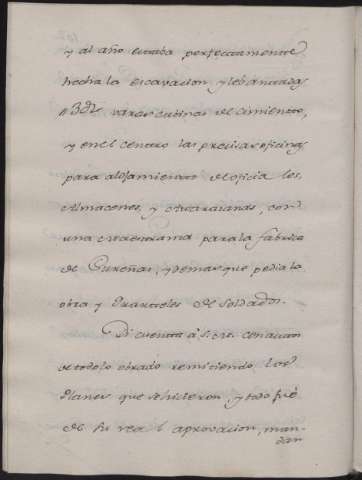 y al año estaba perfectamente
hecha la escavacion y lebantadas
varas cubicas de cimiento,
y en el centro las precisas oficinas
para alojamiento de oficia les,
Almacenes, y otras con
una para la fabrica
de Cureñas, y demas que pedia la
obra y Quarteles de Soldados.
Di cuenta á S. M.
de todo lo obrado remitiendo los
Planes que se hicieron, y todo fué
de su rea l aprovacion, man-
dan